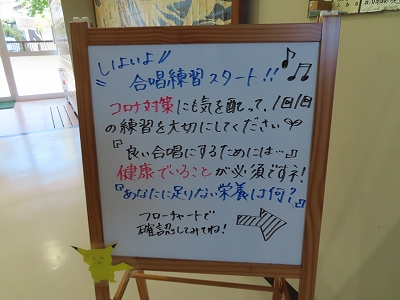 しよいよ
合唱練習スタート!!
コロナ対策にも気を配って、1回1回
の練習を大切にしてください
『良い合唱にするためには…』
健康でいることが必須です!
『あなたに足りない栄養は何?』
フローチャートで
確認してみてね!